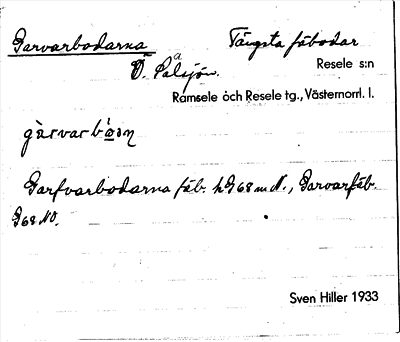 Garvarbodarna Tängsta fäbodar
Ö. Salsjön. Resele s:n
Ramsele och Resele tg., Västernorrl. l.
Garfvarbodarna fäb. hG68mN., Garvarfäb.
G68NO.
Sven Hiller 1933